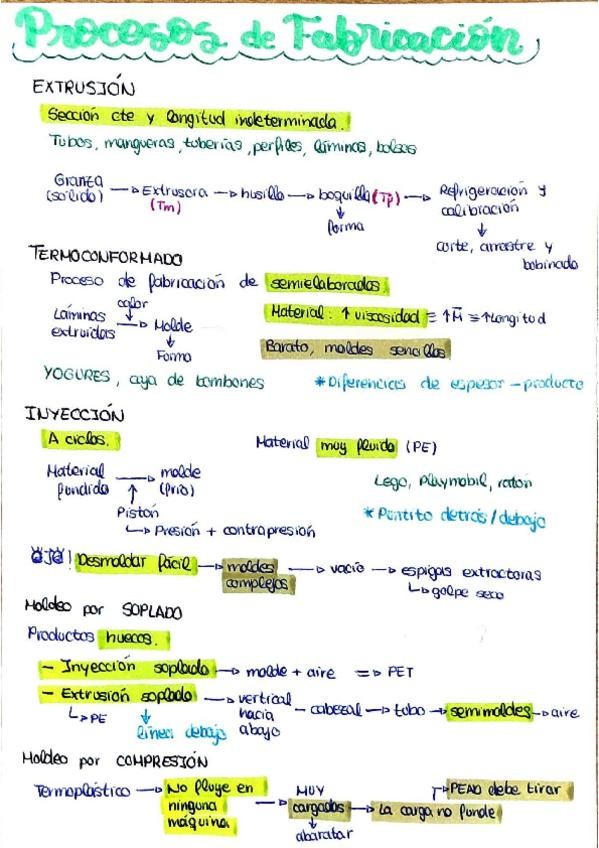 Procesos de Fabricación
EXTRUSIÓN
Sección cte y longitud indeterminada.
Tubos, mangueras, tuberías, perfiles, láminas, bolsas
Granza (sólido) → Extrusora (Tm) → husillo → boquilla (Tp) → Refrigeración y calibración
↓ forma
↓ corte, arrastre y bobinado
TERMOCONFORMADO
Proceso de fabricación de semielaborados
calor
Láminas extruidas → Molde
↓ Forma
Material: ↑ viscosidad ≡ ↑M̄ ≡ ↑longitud
Barato, moldes sencillos
YOGURES, caja de bombones
*Diferencias de espesor - producto
INYECCIÓN
A ciclos.
Material muy fluido (PE)
Material fundido → molde (frío)
↑ Pistón
↳ Presión + contrapresión
Lego, Playmobil, ratón
* Puntito detrás/debajo
OJO! Desmoldar fácil → moldes complejos → vacío → espigas extractoras
↳ golpe seco
Moldeo por SOPLADO
Productos huecos.
- Inyección soplado → molde + aire ⇒ PET
- Extrusión soplado → vertical hacia abajo - cabezal → tubo → semimoldes → aire
↳ PE
↓ línea debajo
Moldeo por COMPRESIÓN
Termoplástico → No fluye en ninguna máquina → MUY cargados → La carga no funde
↓ abaratar
↱ PEAD debe tirar